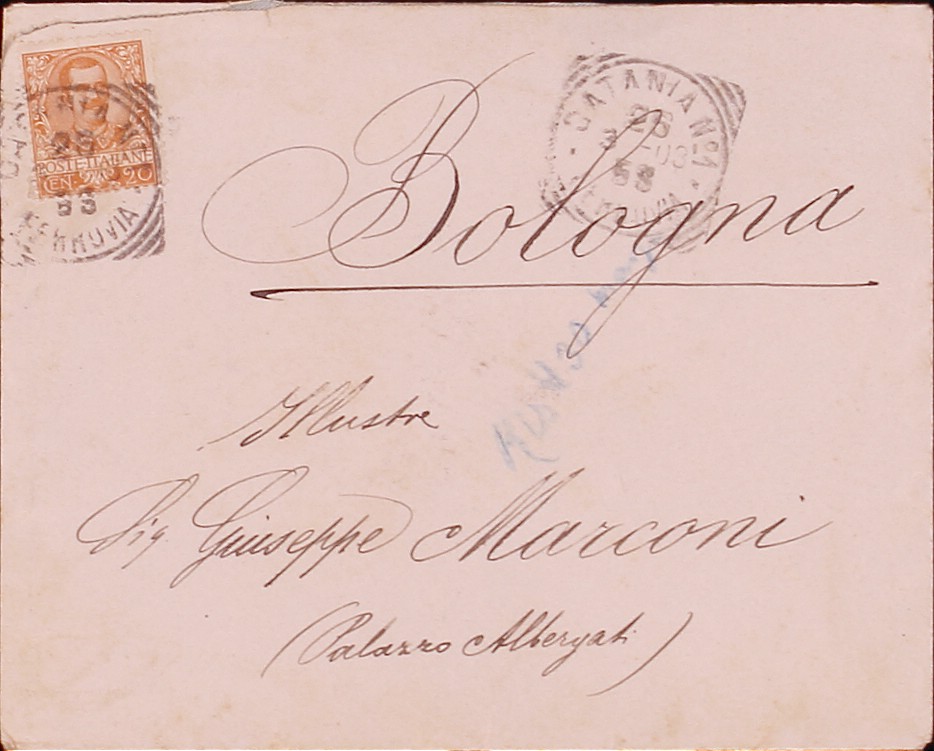 POSTE·ITALIANE
CEN 20
CATANIA Nº1
26
3 -03
5S
FERROVIA
Bologna
Illustre
Sig Giuseppe Marconi
(Palazzo Albergati)